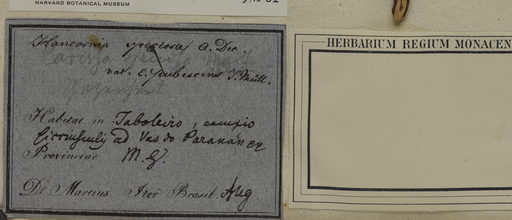 HARVARD BOTANICAL MUSEUM
Hancornia speciosa A. Dec.
var. ε. pubescens J. Müll.
Habitat in Taboleiro, campio
ad Vao do Paranan ex
Provinciae M. G.
Dr Martius Iter Brasil. Aug.
HERBARIUM REGIUM MONACEN